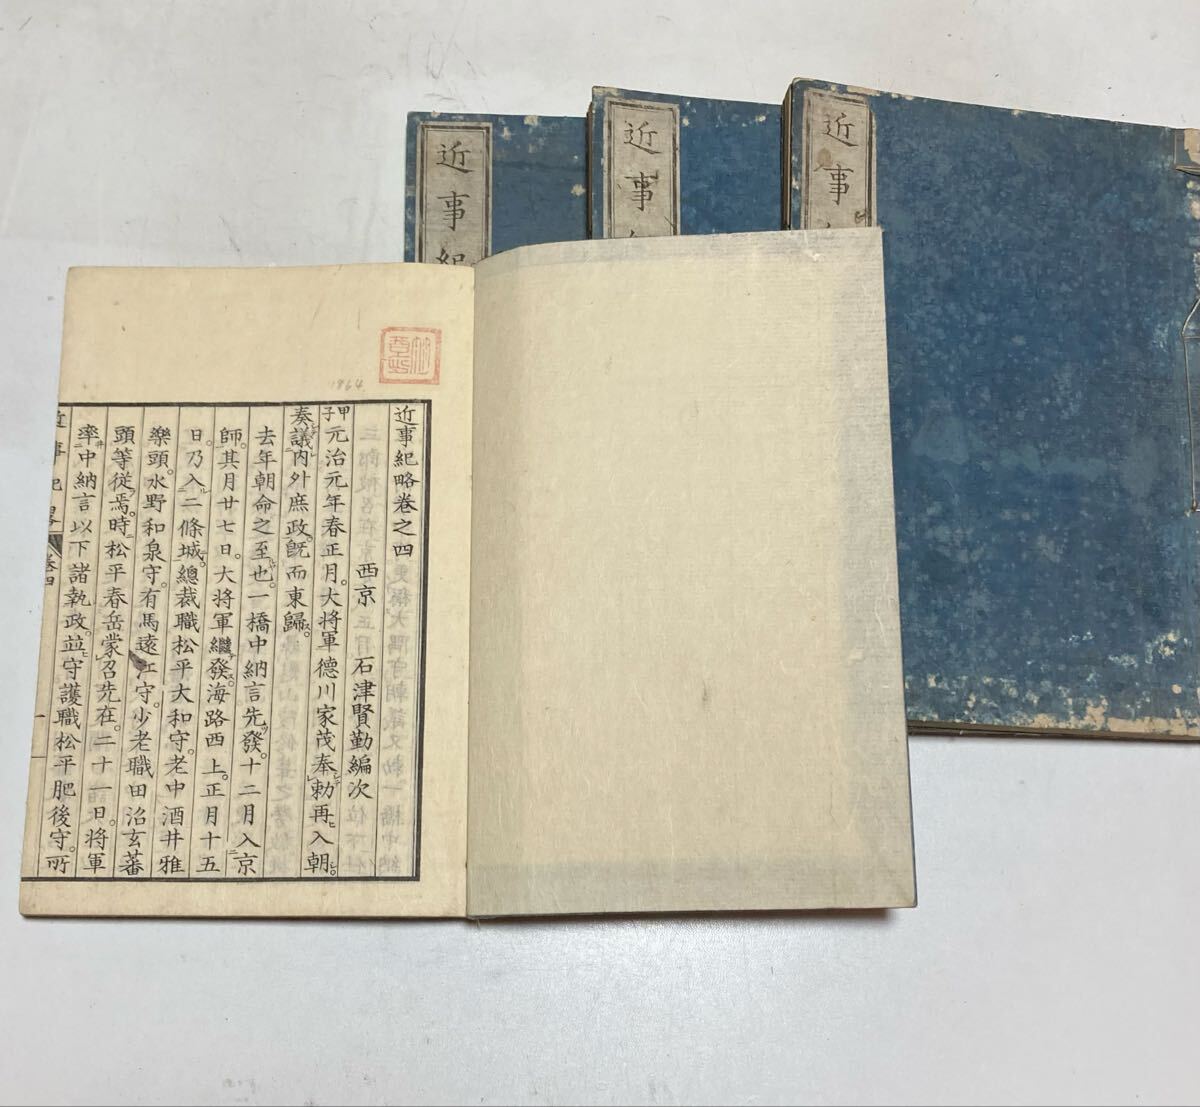 近事
近事
近事紀
1864
近事紀略卷之四
西京 石津賢勤編次
甲子元治元年春正月。大将軍德川家茂奉勅再入朝。
奏議内外庶政。既而東歸。
去年朝命之至也。一橋中納言先發。十二月入京
師。其月廿七日。大将軍繼發海路西上。正月十五
日。乃入二條城。總裁職松平大和守。老中酒井雅
樂頭。水野和泉守。有馬遠江守。少老職田沼玄蕃
頭等從焉。時松平春岳蒙召先在。二十一日。将軍
率中納言以下諸執政。並守護職松平肥後守。所
近事紀畧 卷四 一